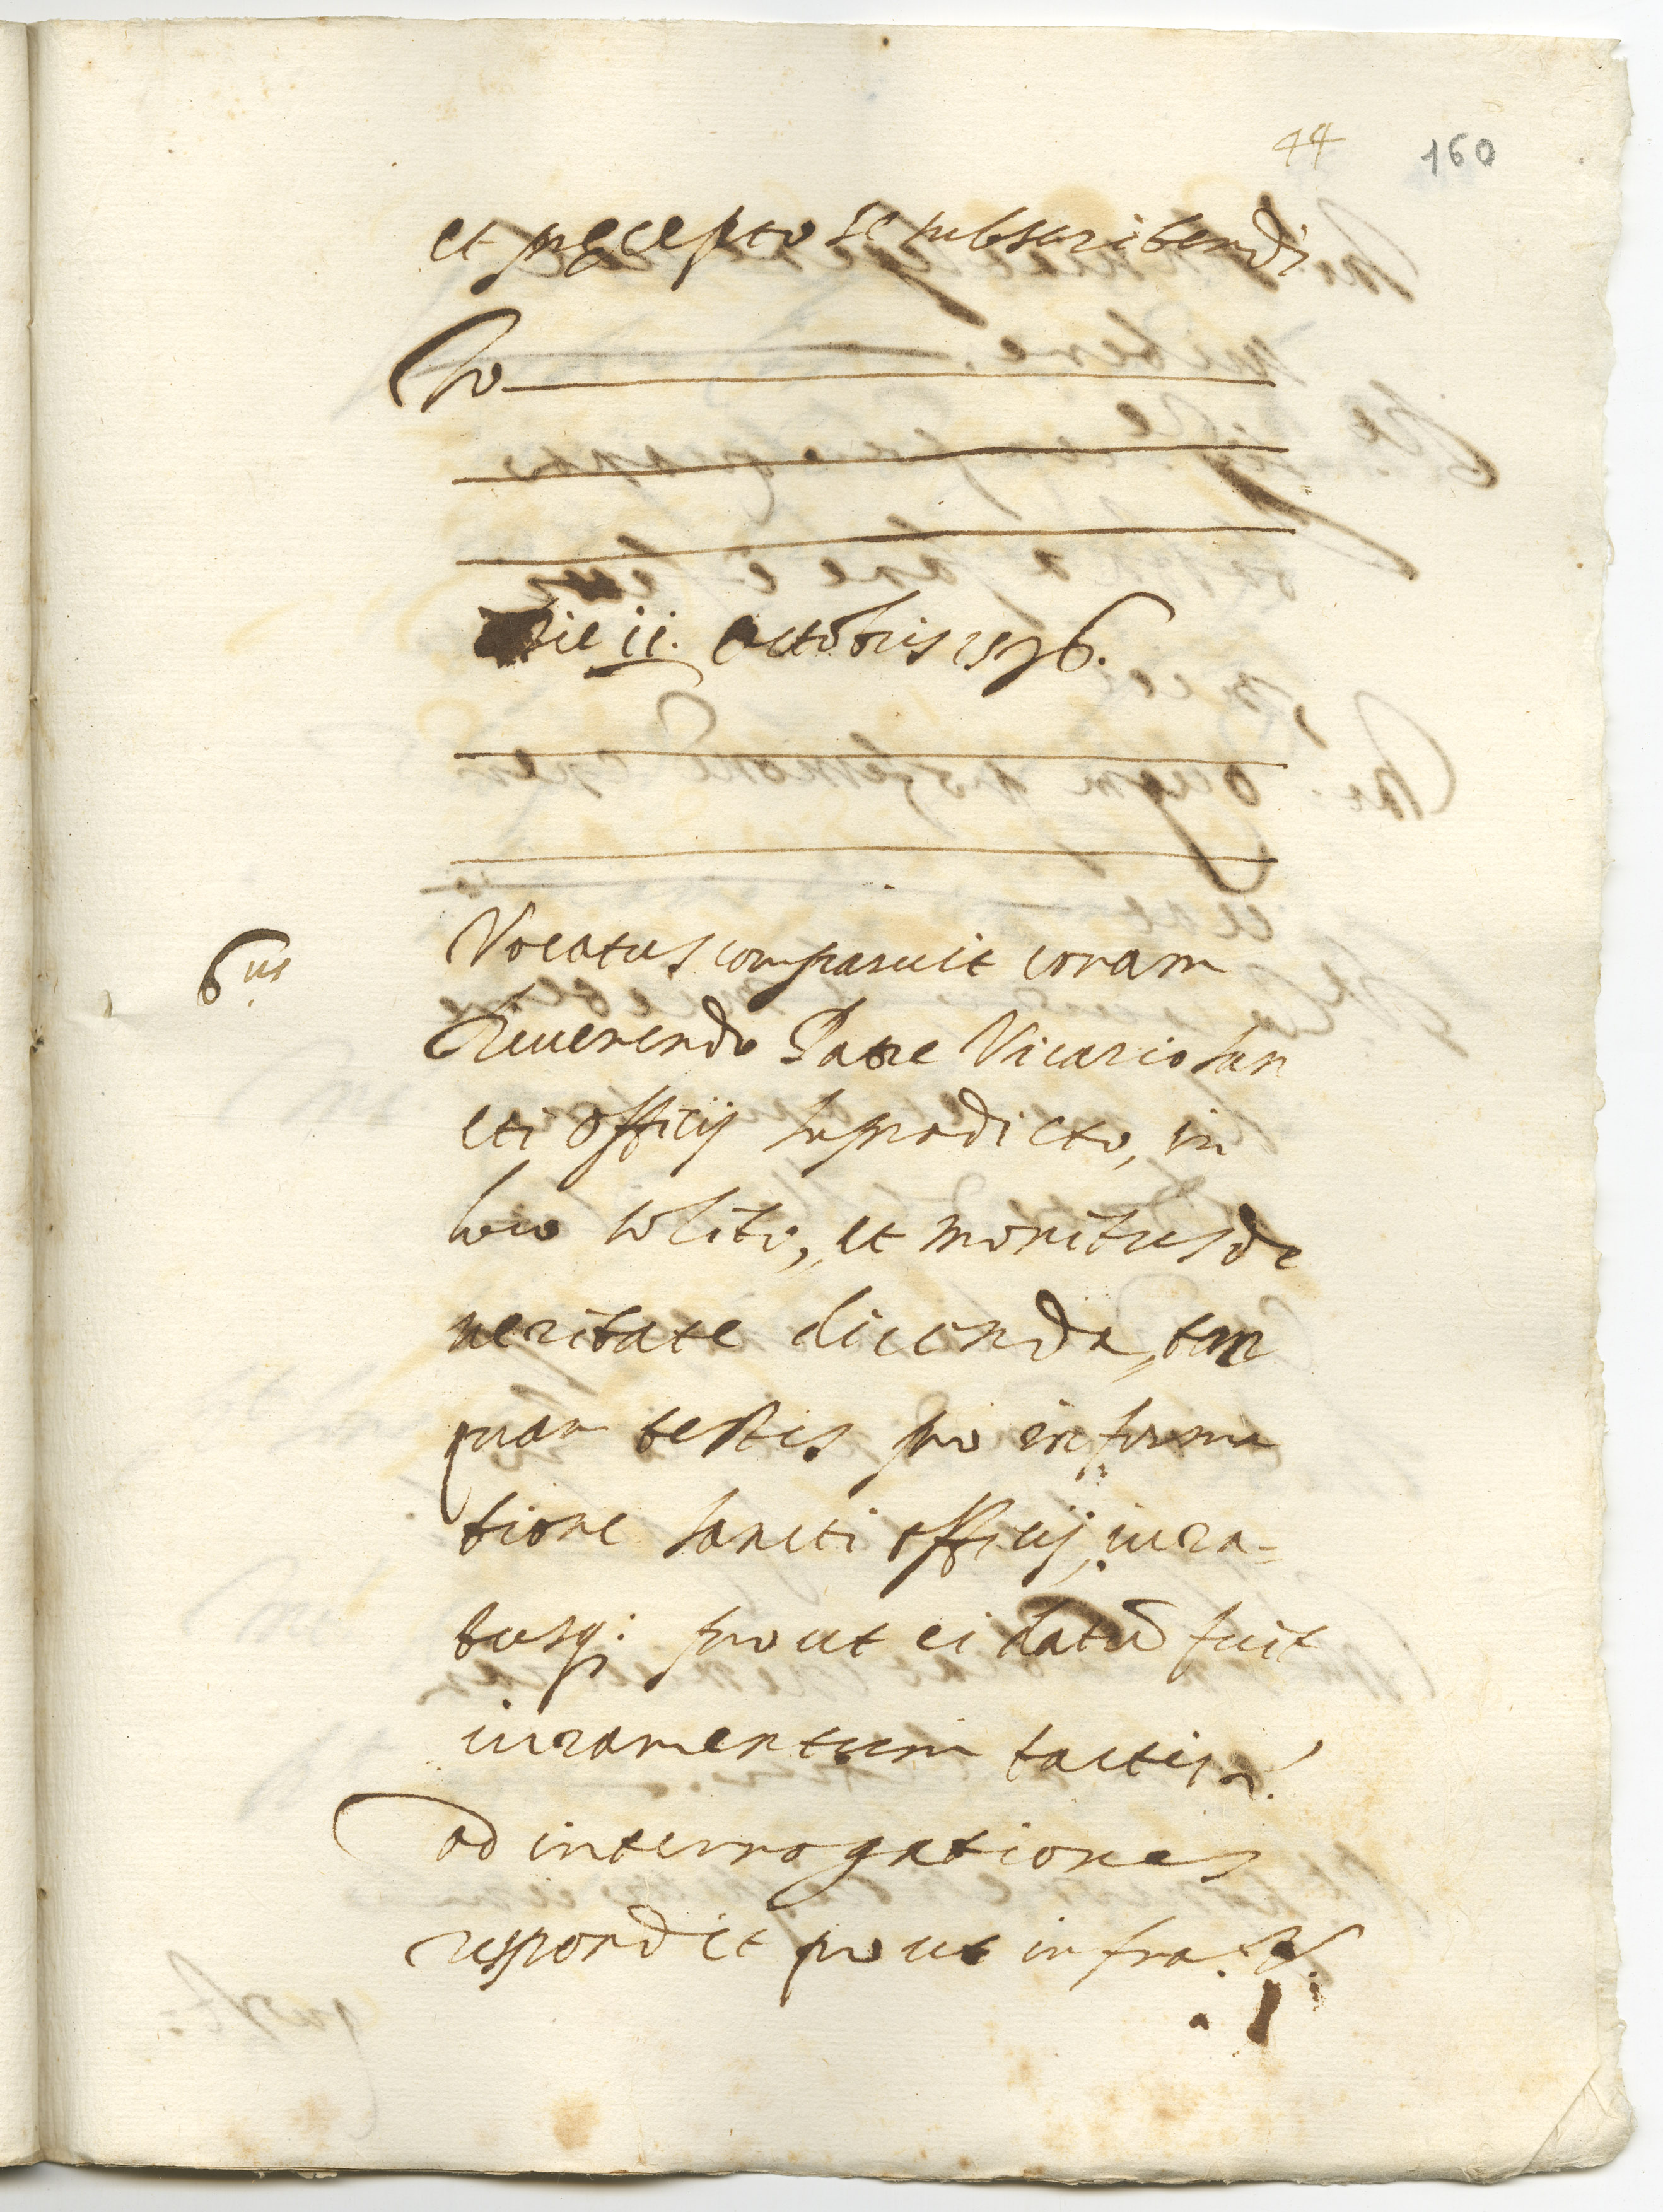 44 160
et precepto se subscribendi
Io
Die ii. Octobris 1576.
6us
Vocatus comparuit coram
Reuerendo Patre Vicario San
cti Officij supradicto, in
loco solito, et monitus de
ueritate dicenda, tan
quam testis pro informa
tione sancti officij, iura-
tusq; prout ei datū fuit
iuramentum tactis &.
ad interrogationes
respondit prout infra. &.